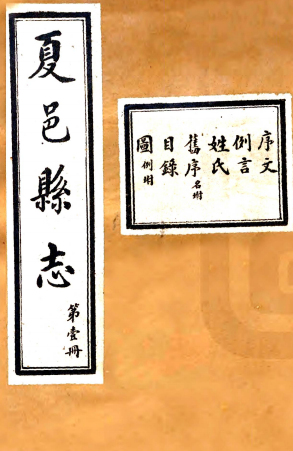 夏邑縣志
第壹冊
序文
例言
姓氏
舊序名附
目錄
圖例附